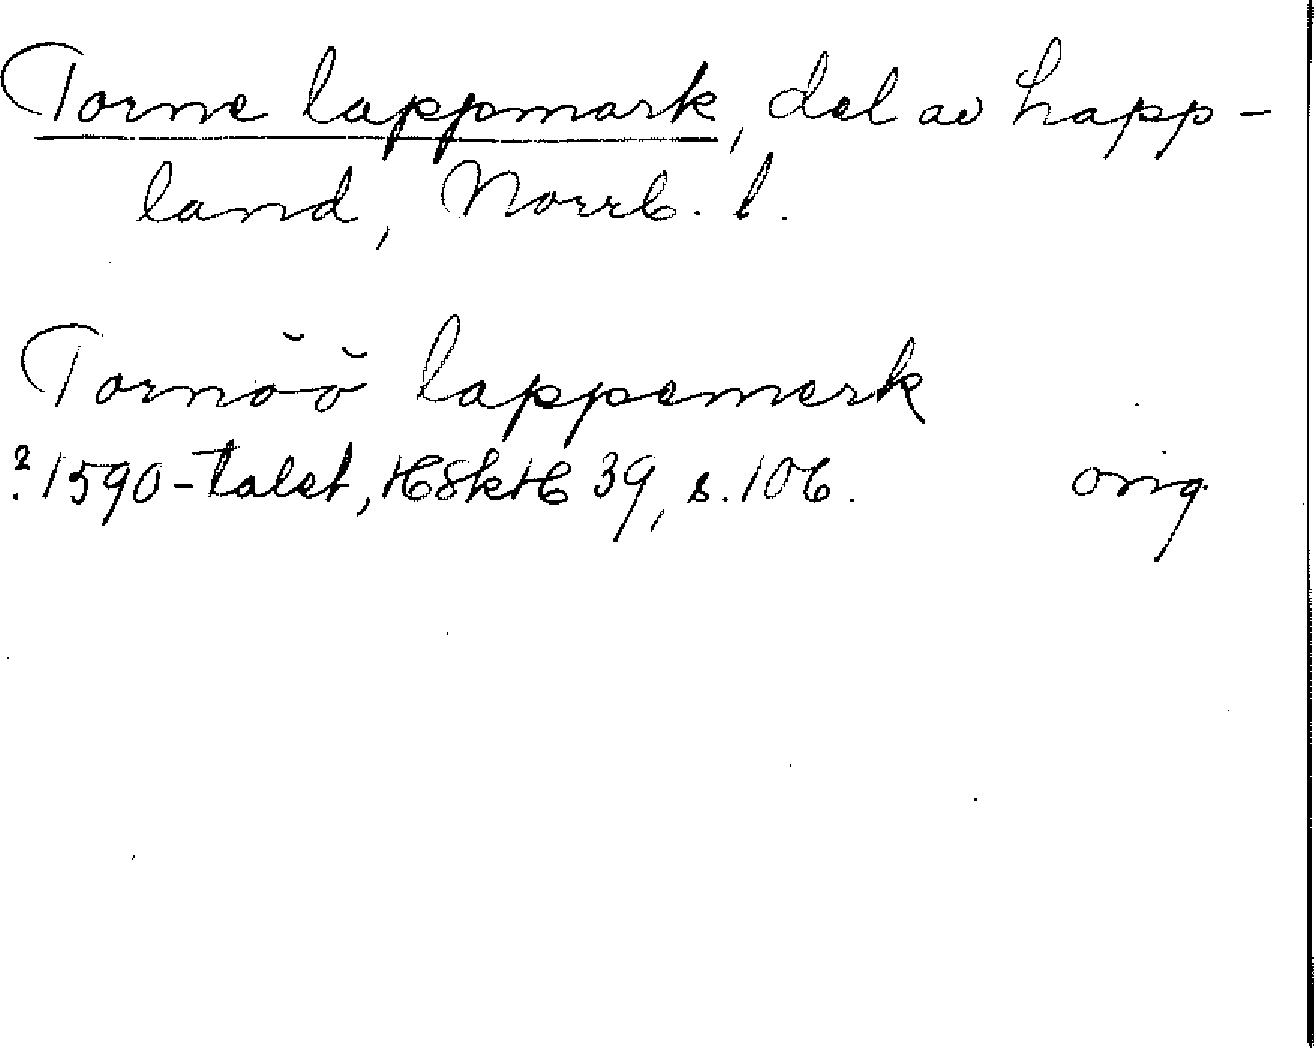 Torne lappmark, del av Lapp-
land, Norrb. l.
Tornŏŏ lappemerk
? 1590-talet, HSkH 39, s. 106. orig